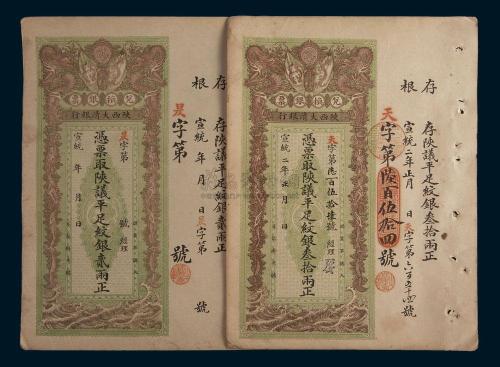 存
根
存陝議平足紋銀叁拾兩正
天字第陸百伍拾四號
宣統二年正月 日天字第六百五十四號
兌換銀票
陝西大清銀行
天字第陸百伍拾肆號 經理
憑票取陝議平足紋銀叁拾兩正
宣統二年正月 日
存
根
存陝議平足紋銀貳兩正
昃字第 號
宣統 年 月 日昃字第 號
兌換銀票
陝西大清銀行
昃字第 號 經理
憑票取陝議平足紋銀貳兩正
宣統 年 月 日